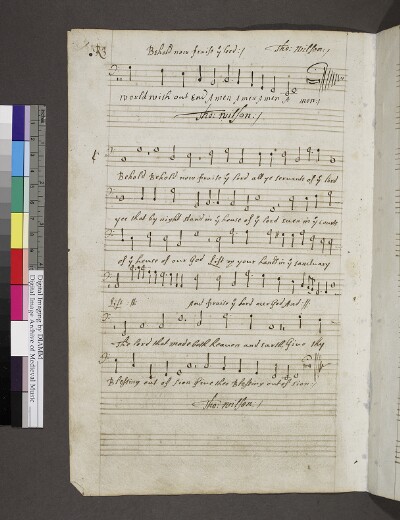 Behold now praise yͤ lord:/ Tho: Wilson:/
world with out End Amen Amen Amen A men:/
Tho: Wilson:/
Behold Behold now praise yͤ lord all ye servants of yͤ lord
yee that by night stand in yͤ house of yͤ lord even in yͤ courts
of yͤ house of our God Lift up your hands in yͤ sanctuary
Lift :||: And praise yͤ lord And
The lord that made both Heaven and Earth Give thee
Blessing out of sion Give thee Blessing out of sion:/
Tho: Wilson:/
Digital Imaging by DIAMM
Digital Image Archive of Medieval Music